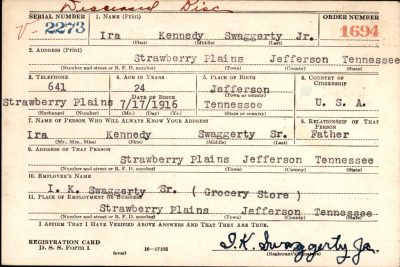 Diseased Disc
SERIAL NUMBER 1. NAME (Print) ORDER NUMBER
2273 Ira Kennedy Swaggerty Jr. 1694
(First) (Middle) (Last)
2. ADDRESS (Print)
Strawberry Plains Jefferson Tennessee
(Number and street or R. F. D. number) (Town) (County) (State)
3. TELEPHONE 4. AGE IN YEARS 5. PLACE OF BIRTH 6. COUNTRY OF CITIZENSHIP
641 24 Jefferson
DATE OF BIRTH (Town or county)
Strawberry Plains 7/17/1916 Tennessee U. S. A.
(Exchange) (Number) (Mo.) (Day) (Yr.) (State or country)
7. NAME OF PERSON WHO WILL ALWAYS KNOW YOUR ADDRESS 8. RELATIONSHIP OF THAT PERSON
Ira Kennedy Swaggerty Sr. Father
(Mr., Mrs., Miss) (First) (Middle) (Last)
9. ADDRESS OF THAT PERSON
Strawberry Plains Jefferson Tennessee
(Number and street or R. F. D. number) (Town) (County) (State)
10. EMPLOYER'S NAME
I. K. Swaggerty Sr. ( Grocery Store )
11. PLACE OF EMPLOYMENT OR BUSINESS
Strawberry Plains Jefferson Tennessee
(Number and street or R. F. D. number) (Town) (County) (State)
I AFFIRM THAT I HAVE VERIFIED ABOVE ANSWERS AND THAT THEY ARE TRUE.
REGISTRATION CARD
D. S. S. Form 1 (over) 16-17105 I.K. Swaggerty Jr.